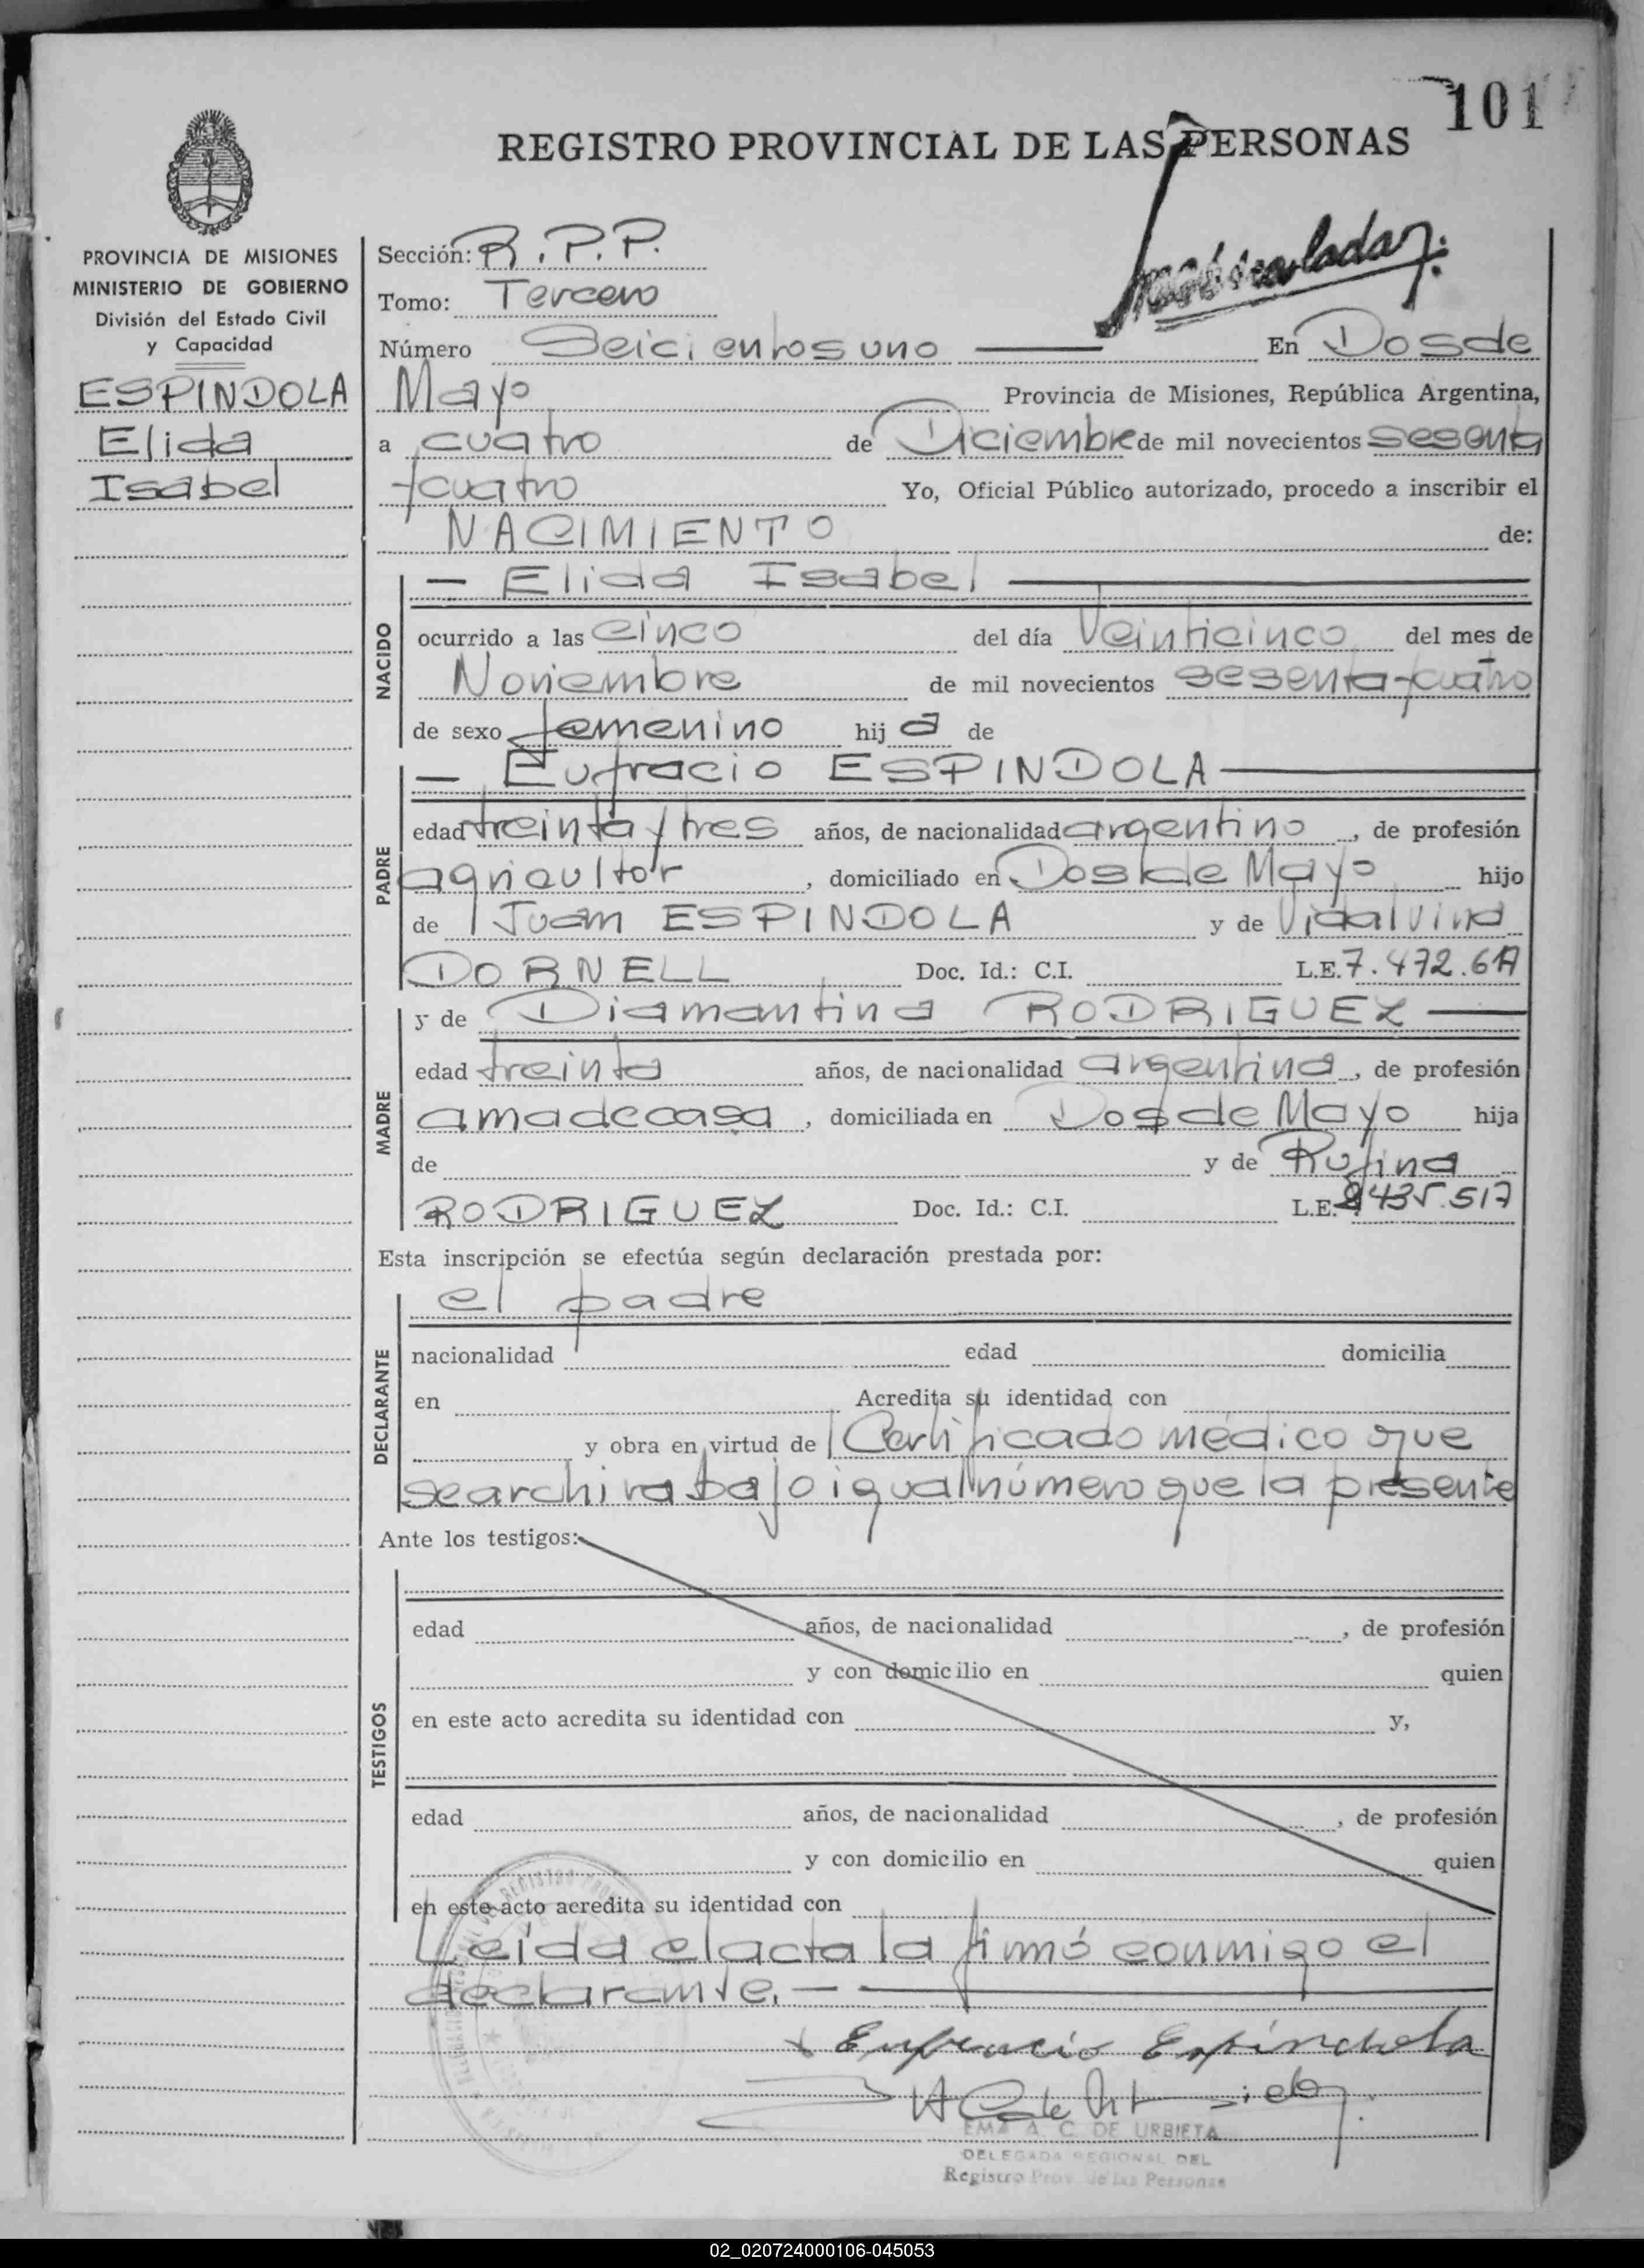 101
REGISTRO PROVINCIAL DE LAS PERSONAS
PROVINCIA DE MISIONES
MINISTERIO DE GOBIERNO
División del Estado Civil
y Capacidad
ESPINDOLA
Elida
Isabel
Sección: R.P.P.
Tomo: Tercero
Número Seicientos uno En Dos de
Mayo Provincia de Misiones, República Argentina,
a cuatro de Diciembre de mil novecientos sesenta
y cuatro Yo, Oficial Público autorizado, procedo a inscribir el
NACIMIENTO de:
NACIDO
— Elida Isabel
ocurrido a las cinco del día Veinticinco del mes de
Noviembre de mil novecientos sesenta y cuatro
de sexo femenino hij a de
PADRE
— Eufracio ESPINDOLA
edad treinta y tres años, de nacionalidad argentino, de profesión
agricultor, domiciliado en Dos de Mayo hijo
de Juan ESPINDOLA y de Vidalvina
DORNELL Doc. Id.: C.I. L.E.
MADRE
y de Diamantina RODRIGUEZ —
edad treinta años, de nacionalidad argentina, de profesión
ama de casa, domiciliada en Dos de Mayo hija
de y de Rufina
RODRIGUEZ Doc. Id.: C.I. L.E.
Esta inscripción se efectúa según declaración prestada por:
DECLARANTE
el padre
nacionalidad edad domicilia
en Acredita su identidad con
y obra en virtud de Certificado médico que
se archiva bajo igual número que la presente
Ante los testigos:
TESTIGOS
edad años, de nacionalidad , de profesión
y con domicilio en quien
en este acto acredita su identidad con y,
edad años, de nacionalidad , de profesión
y con domicilio en quien
en este acto acredita su identidad con
Leída el acta la firmó conmigo el
declarante. —
Eufracio Espíndola
EMA A. C. DE URBIETA
DELEGADA REGIONAL DEL
Registro Prov. de las Personas
02_020724000106-045053